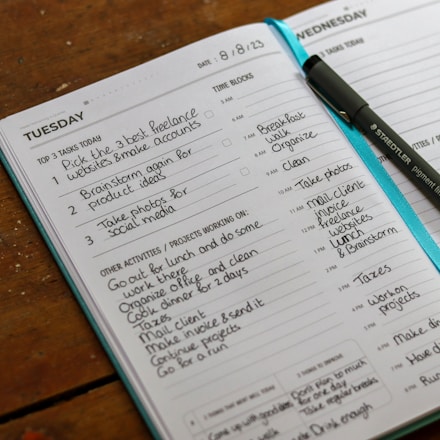 DATE: 8/8/23
TUESDAY
TOP 3 TASKS TODAY
1 Pick the 3 best freelance
websites & make accounts
2 Brainstorm again for
product ideas
3 Take photos for
social media
OTHER ACTIVITIES / PROJECTS WORKING ON:
Go out for lunch and do some
work there
Organize office and clean
Cook dinner for 2 days
Taxes
Mail client
Make invoice & send it
Continue projects
Go for a run
TIME BLOCKS
5 AM
6 AM
7 AM Breakfast
walk
8 AM Organize
9 AM clean
10 AM Take photos
11 AM Mail client
invoice
12 PM freelance
websites
1 PM Lunch
& Brainstorm
2 PM
3 PM Taxes
4 PM Work on
projects
5 PM
6 PM Make
7 PM Have
8 PM Run
3 THINGS THAT WENT WELL TODAY
Come up with good
walk
3 THINGS TO IMPROVE
Don't plan too much
for one day
Take regular breaks
Drink enough
WEDNESDAY
TOP 3 TASKS TODAY
1
2
3
STAEDTLER
pigment